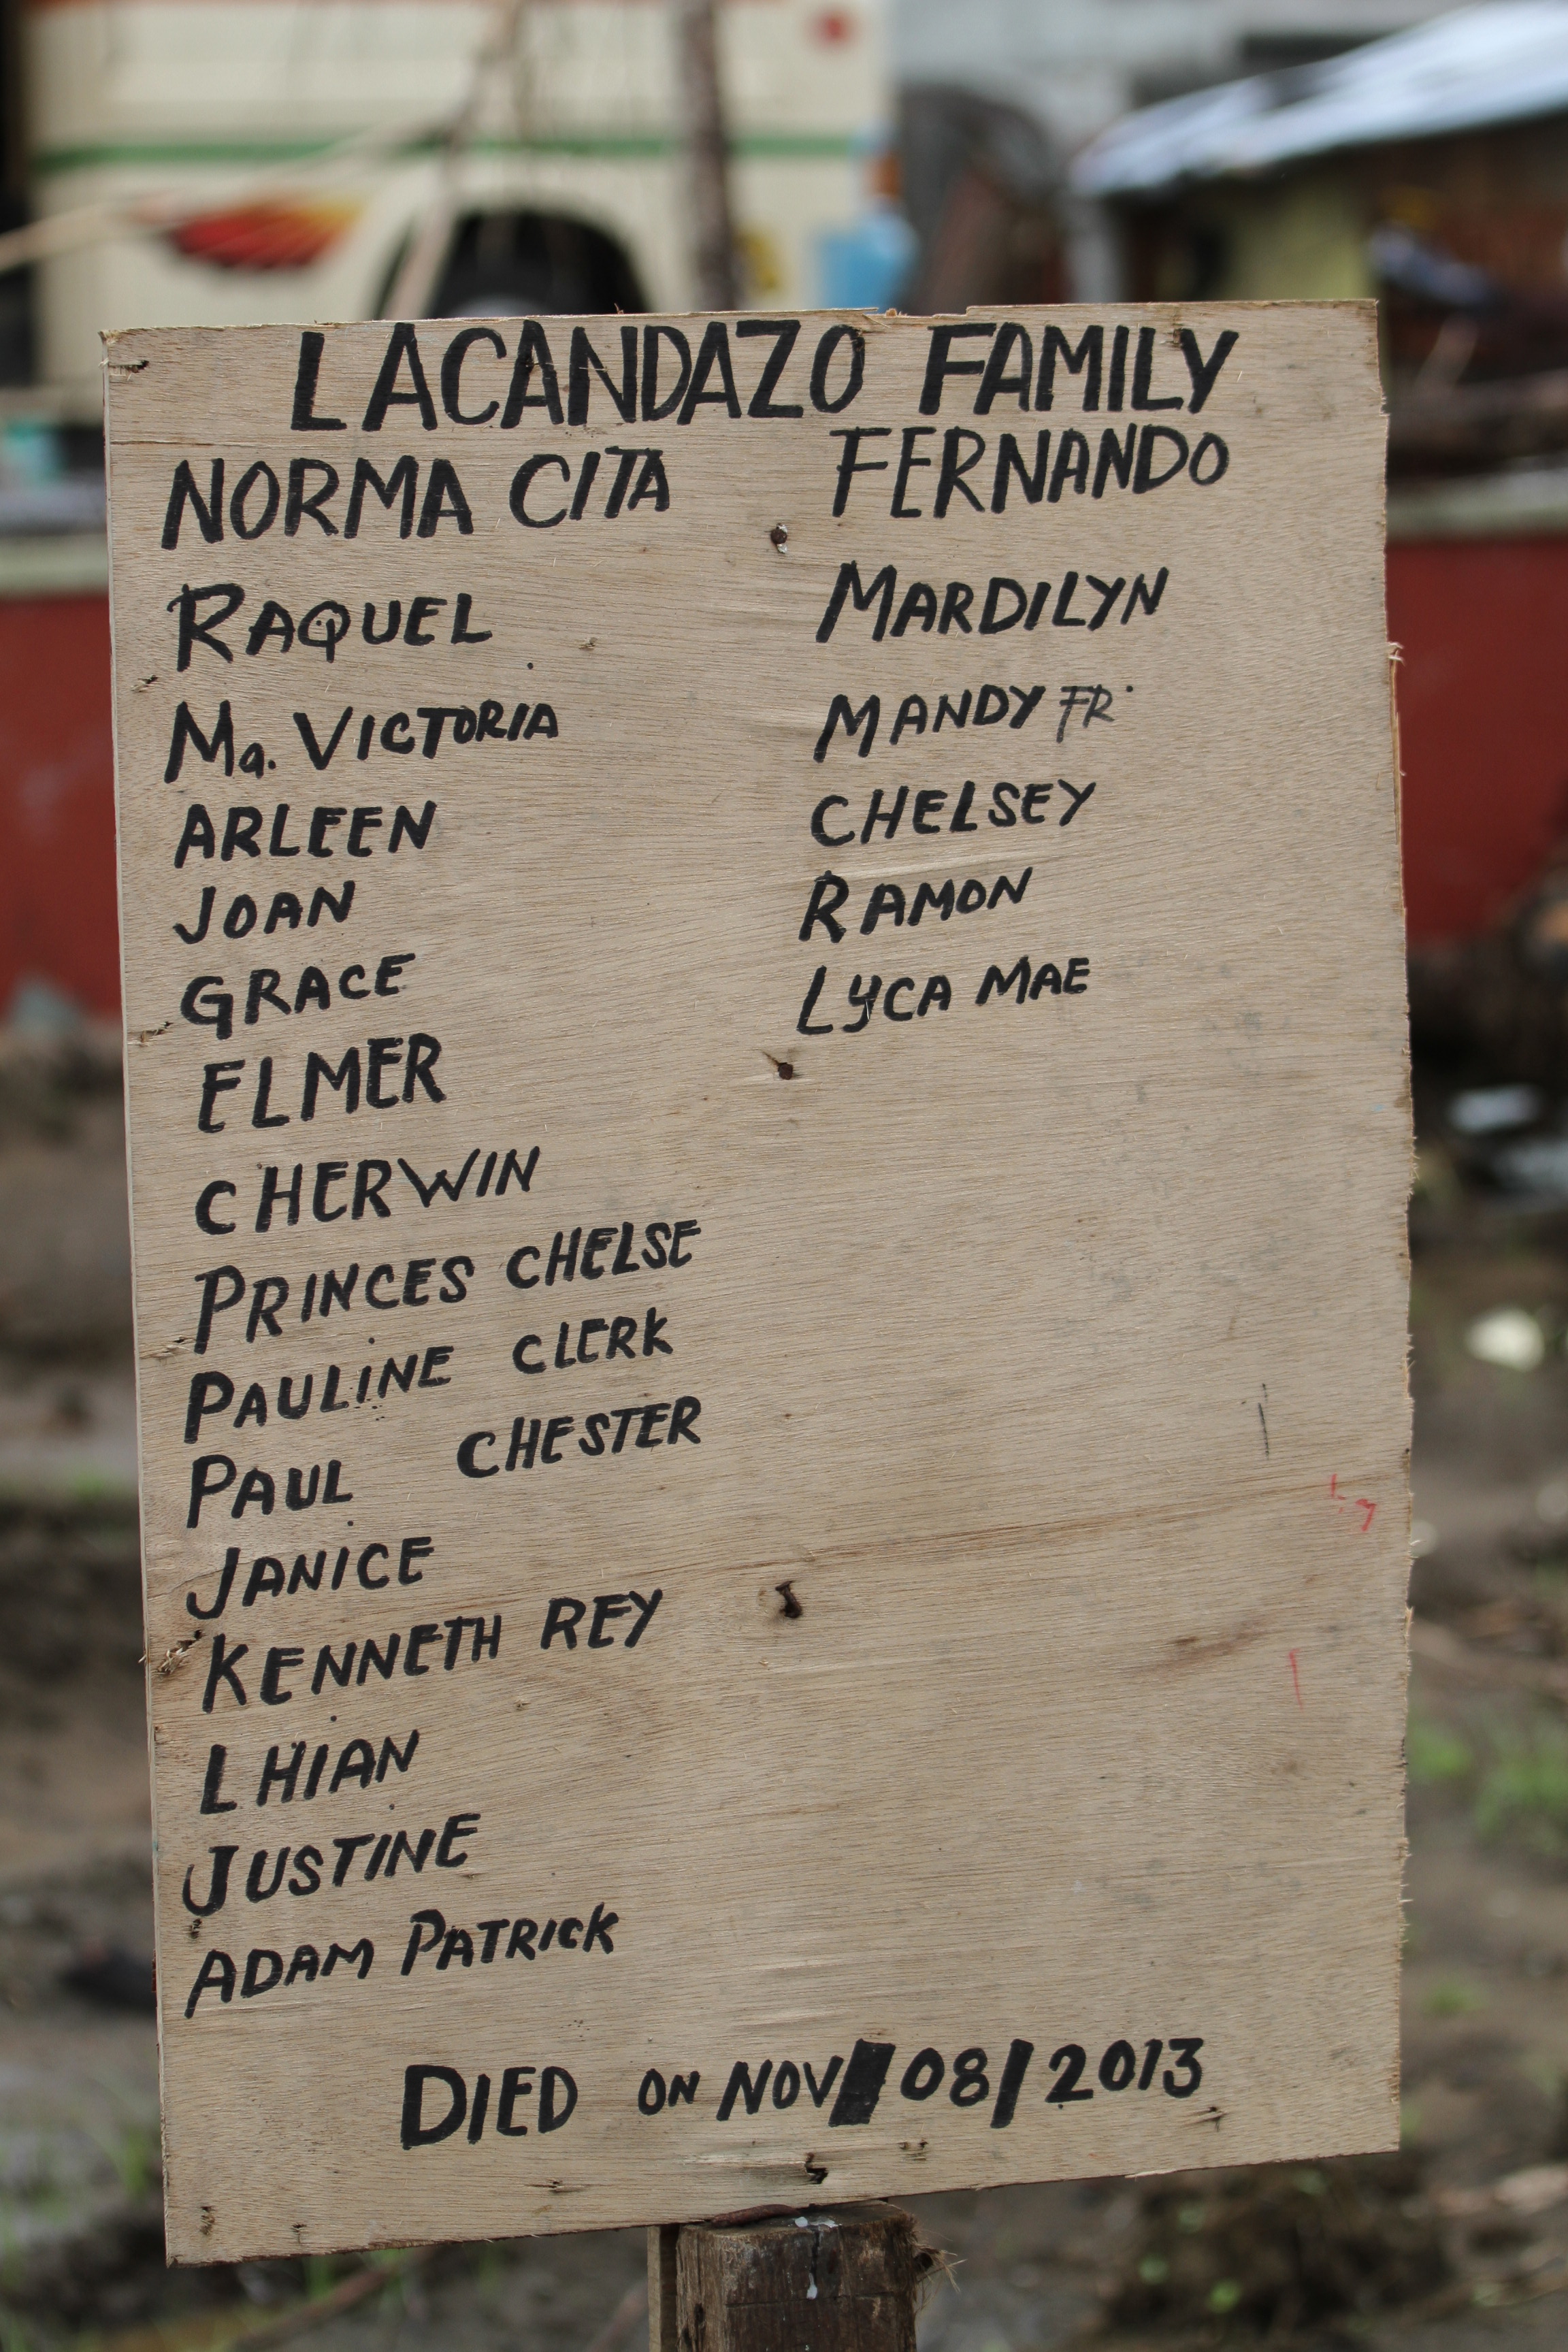 LACANDAZO FAMILY
NORMA CITA
RAQUEL
Ma. VICTORIA
ARLEEN
JOAN
GRACE
ELMER
CHERWIN
PRINCES CHELSE
PAULINE CLERK
PAUL CHESTER
JANICE
KENNETH REY
LHIAN
JUSTINE
ADAM PATRICK
FERNANDO
MARDILYN
MANDY FR.
CHELSEY
RAMON
LYCA MAE
DIED ON NOV/08/2013